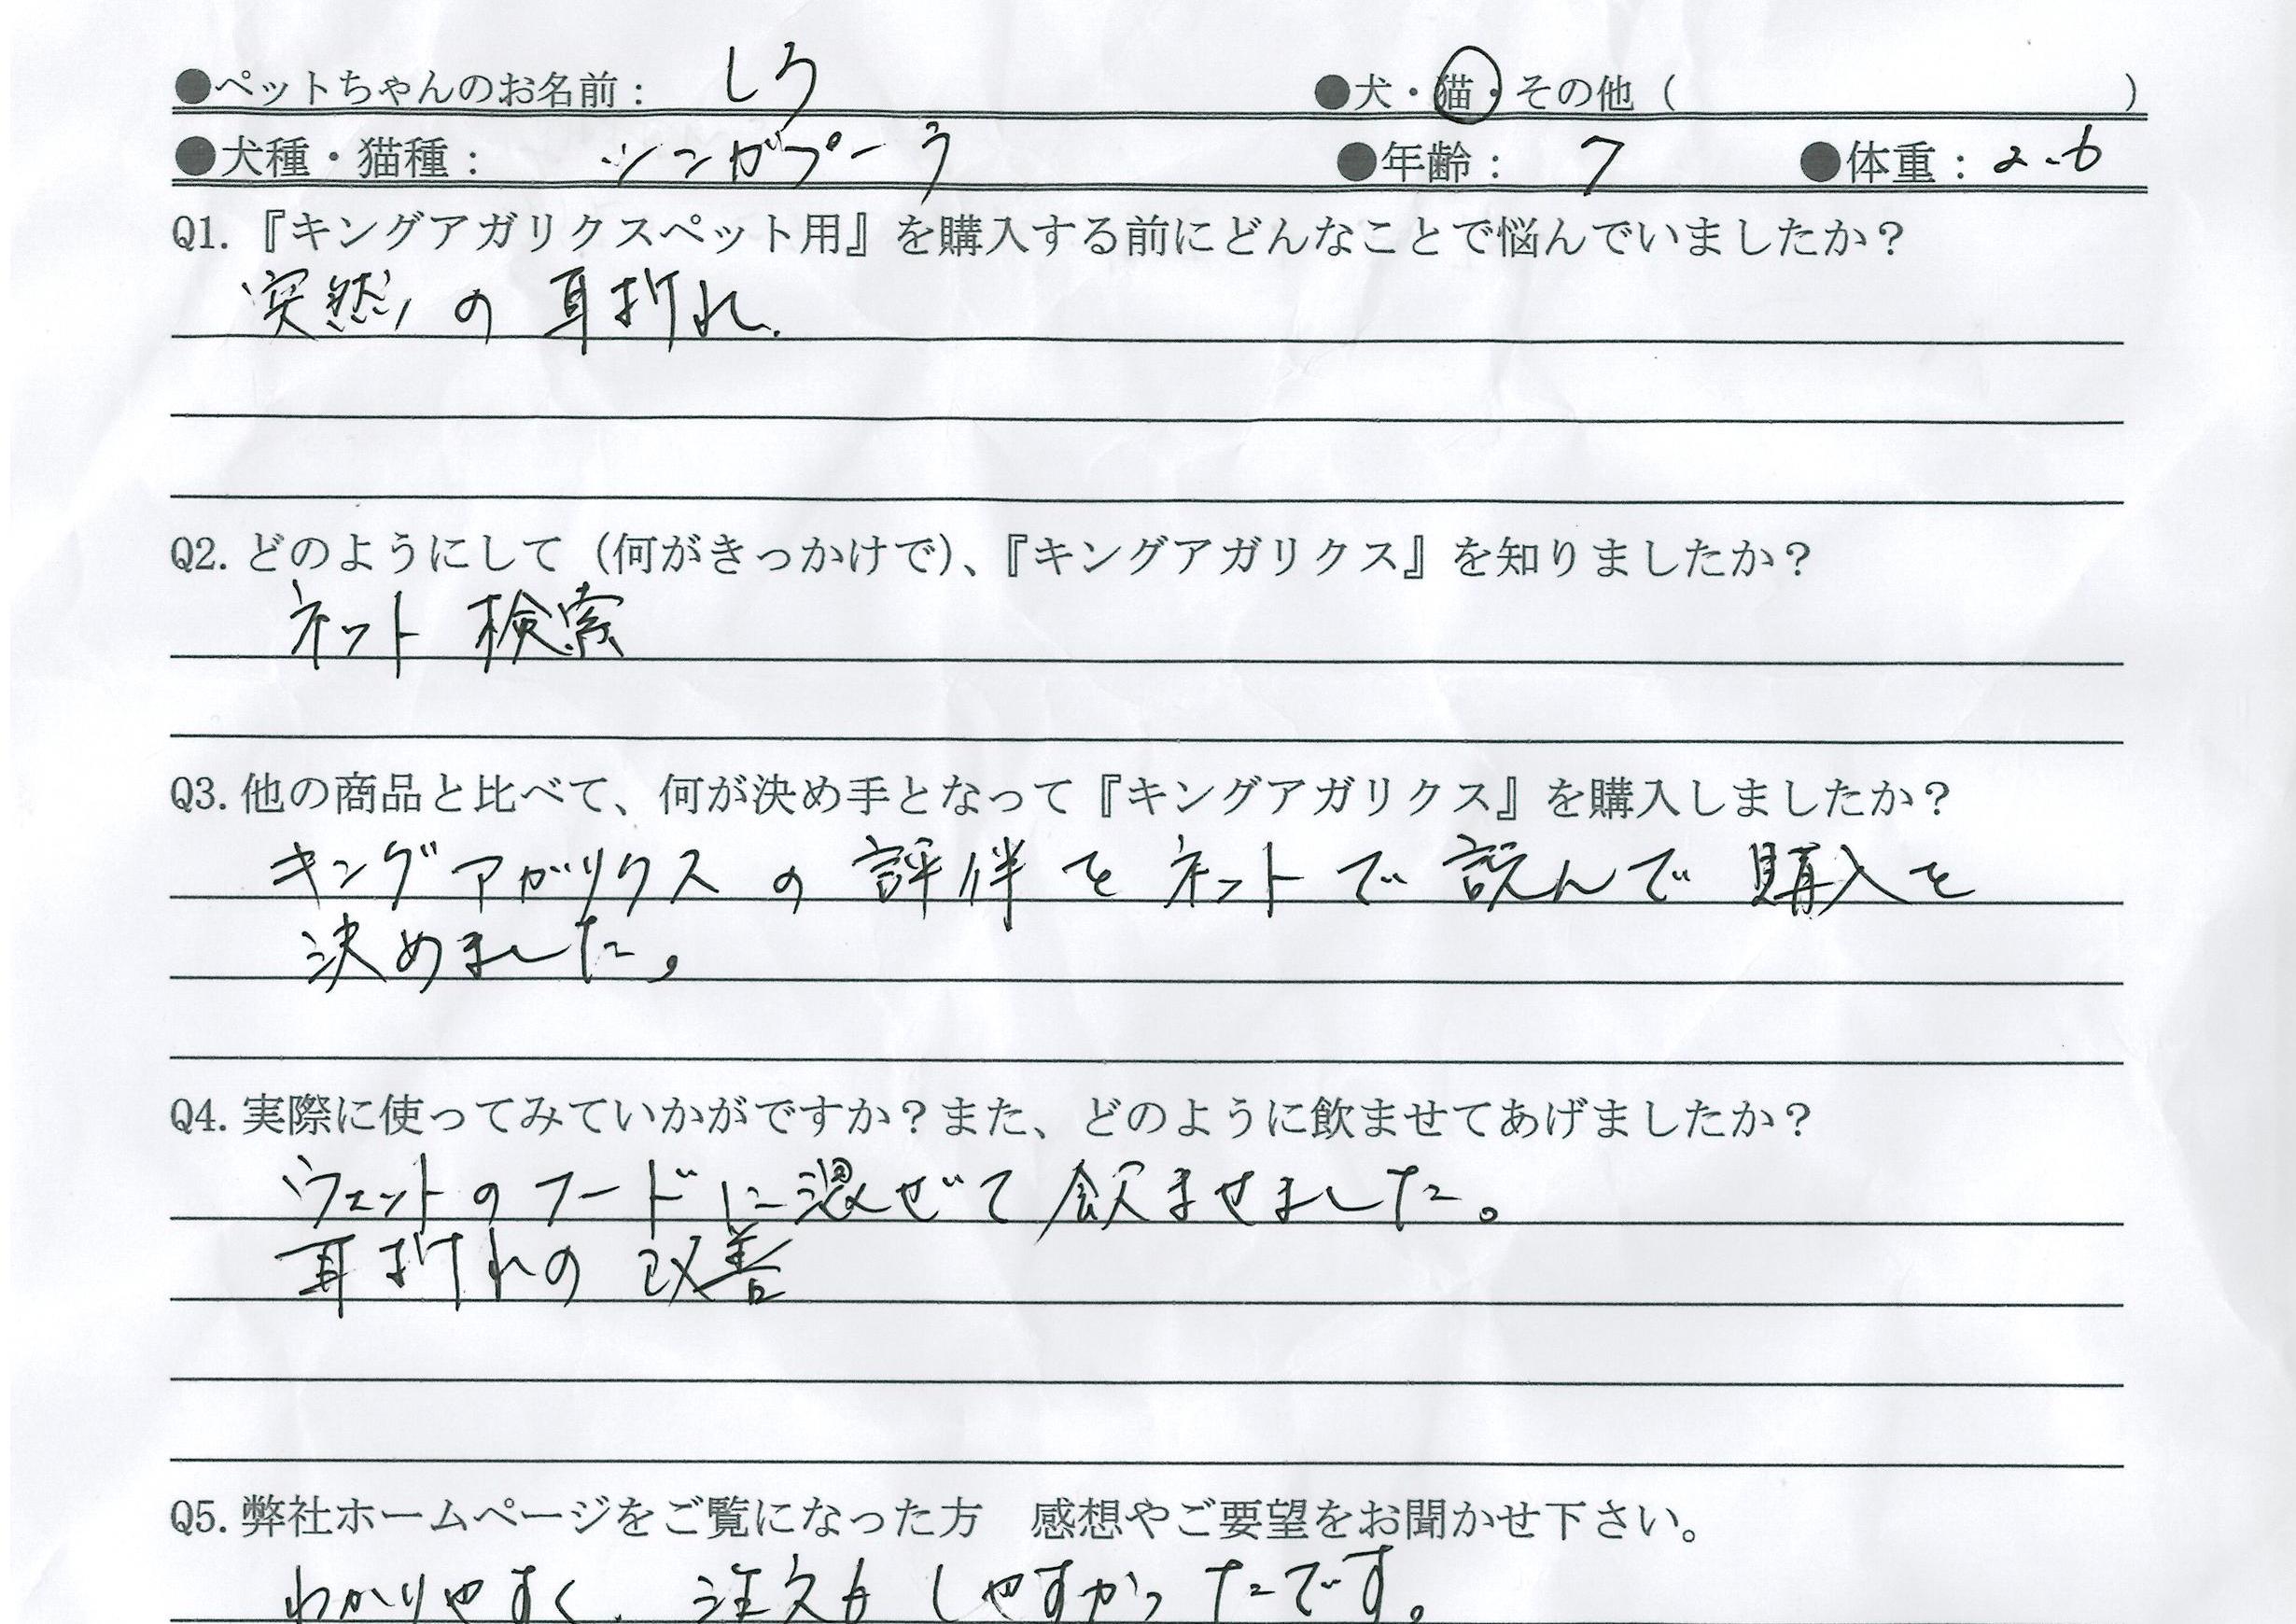 ●ペットちゃんのお名前： しろ ●犬・猫・その他（ ）
●犬種・猫種： シンガプーラ ●年齢： 7 ●体重：2.6
Q1.『キングアガリクスペット用』を購入する前にどんなことで悩んでいましたか？
突然の耳折れ.
Q2.どのようにして（何がきっかけで）、『キングアガリクス』を知りましたか？
ネット検索
Q3.他の商品と比べて、何が決め手となって『キングアガリクス』を購入しましたか？
キングアガリクスの評伴をネットで読んで購入を
決めました。
Q4.実際に使ってみていかがですか？また、どのように飲ませてあげましたか？
ウェットのフードに混ぜて飲ませました。
耳折れの改善
Q5.弊社ホームページをご覧になった方　感想やご要望をお聞かせ下さい。
わかりやすく、注文もしやすかったです。